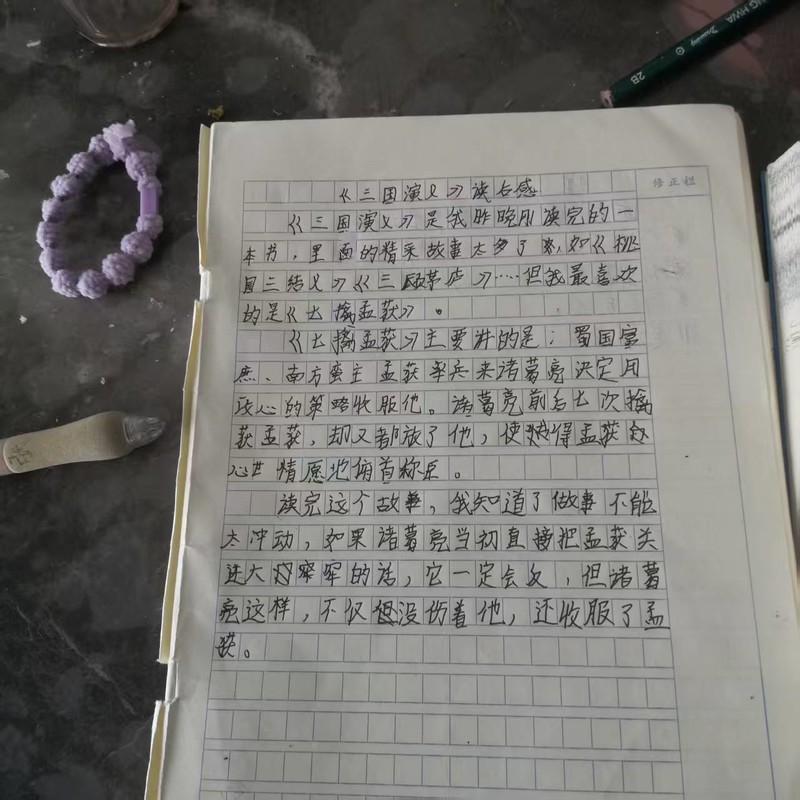 NG HWA Drawing 2B
修正栏
《三国演义》读后感
《三国演义》是我昨晚刚读完的一
本书，里面的精采故事太多了，如《桃
园三结义》《三顾茅庐》……但我最喜欢
的是《七擒孟获》。
《七擒孟获》主要讲的是：蜀国
南方蛮主孟获率兵来诸葛亮决定用
攻心的策略收服他。诸葛亮前后七次擒
获孟获，却又都放了他，使得孟获
心甘情愿地俯首称臣。
读完这个故事，我知道了做事不能
太冲动，如果诸葛亮当初直接把孟获关
进大牢的话，它一定会，但诸葛
亮这样，不仅没伤着他，还收服了孟
获。